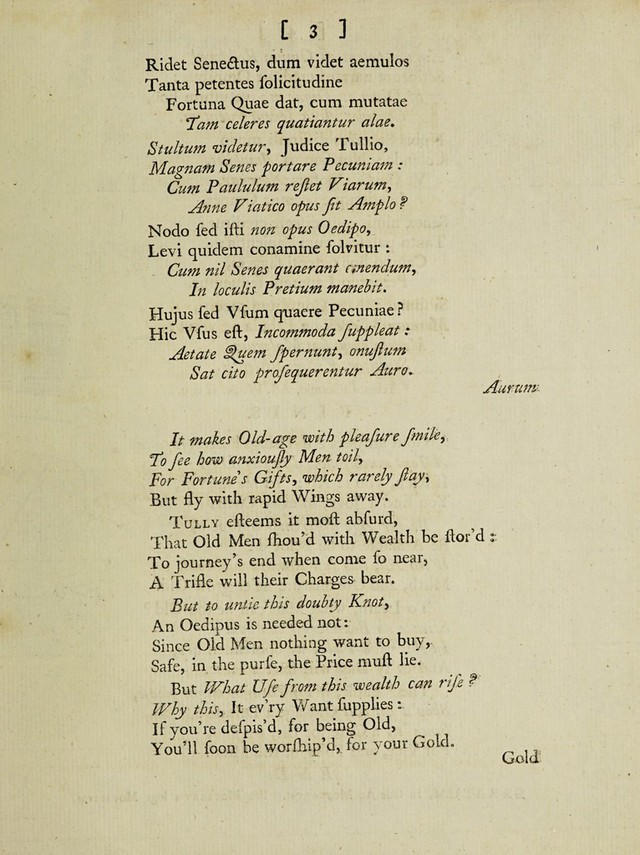 [ 3 ]
Ridet Senectus, dum videt aemulos
Tanta petentes ſolicitudine
Fortuna Quae dat, cum mutatae
Tam celeres quatiantur alae.
Stultum videtur, Judice Tullio,
Magnam Senes portare Pecuniam :
Cum Paululum reſtet Viarum,
Anne Viatico opus ſit Amplo?
Nodo ſed iſti non opus Oedipo,
Levi quidem conamine ſolvitur :
Cum nil Senes quaerant emendum,
In loculis Pretium manebit.
Hujus ſed Vſum quaere Pecuniae?
Hic Vſus eſt, Incommoda ſuppleat :
Aetate Quem ſpernunt, onuſtum
Sat cito proſequerentur Auro.
Aurum
It makes Old-age with pleaſure ſmile,
To ſee how anxiouſly Men toil,
For Fortune's Gifts, which rarely ſtay,
But fly with rapid Wings away.
TULLY eſteems it moſt abſurd,
That Old Men ſhou'd with Wealth be ſtor'd :
To journey's end when come ſo near,
A Trifle will their Charges bear.
But to untie this doubty Knot,
An Oedipus is needed not:
Since Old Men nothing want to buy,
Safe, in the purſe, the Price muſt lie.
But What Uſe from this wealth can riſe ?
Why this, It ev'ry Want ſupplies :
If you're deſpis'd, for being Old,
You'll ſoon be worſhip'd, for your Gold.
Gold